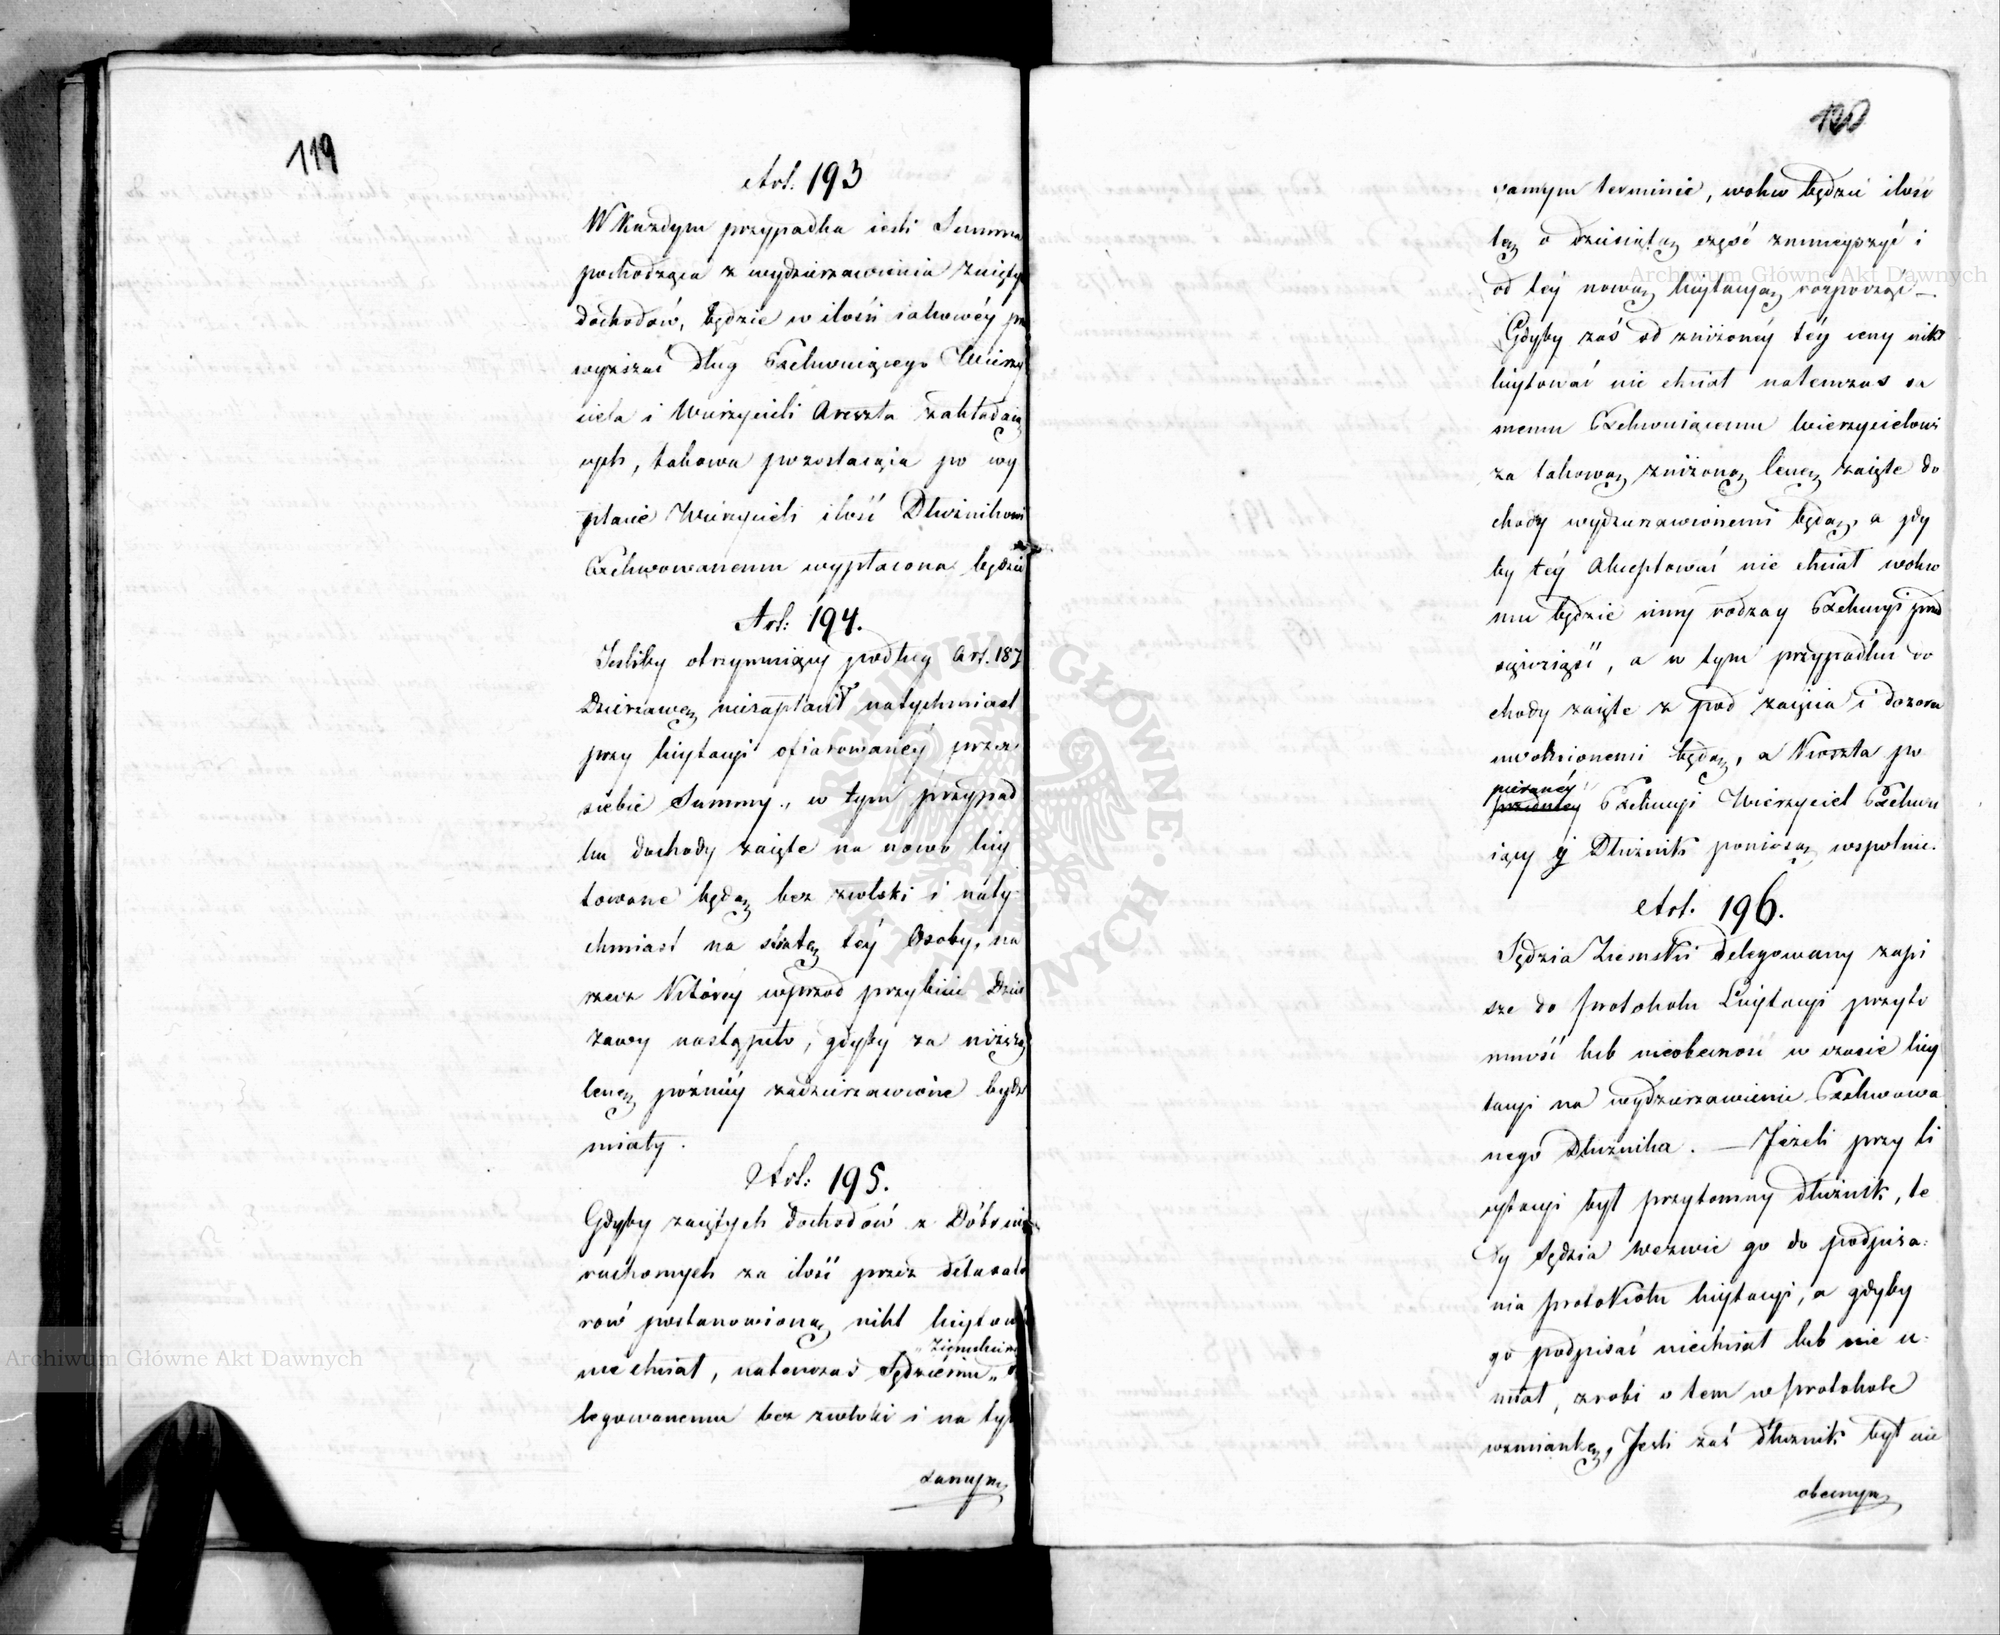 119
Art. 193
W Każdym przypadku iesli Summa
pochodząca z wydzierzawienia zaięty
dochodów, będzie w ilości iakowéy prze
wyższać dług Exekwuiącego Wierzy
ciela i Wierzycieli Areszta zakładaią
cych, takowa pozostaiąca po wy
płacie Wierzycieli ilość Dłużnikowi
Exekwowanemu wypłacona będzie
Art: 194.
Jesliby otrzymuiący podług Art. 187
Dzierzawę niezapłacił natychmiast
przy licytacyi ofiarowanéy przez
siebie Summy, w tym przypad
ku dochody zaięte na nowo licy
towane będą bez zwłoki i naty
chmiast na stratę téy Osoby, na
rzecz Któréy wprzod przybicie Dzier
zawy nastąpiło, gdyby za niższą
Cenę późniéy zadzierzawione bydź
miały.
Art: 195.
Gdyby zaiętych dochodów z Dóbr nie
ruchomych za ilość przez detaxato
rów postanowioną nikt licytować
Ziemskiemu
nie chciał, natenczas Sędziemu de
legowanemu bez zwłoki i na tym
samym
Archiwum Główne Akt Dawnych
120
samym terminie, wolno będzie ilość
tę o dziesiątą część zmnieyszyć i
od téy nową licytacyą rozpocząć —
Gdyby zaś od zniżonéy téy ceny nikt
licytować nie chciał natenczas sa
memu Exekwuiącemu Wierzycielowi
za takową zniżoną Cenę zaięte do
chody wydzierzawionemi będą, a gdy
by téy Akceptować nie chciał wolno
mu będzie inny rodzay Exekucyi przed
sięwziąść, a w tym przypadku do
chody zaięte z pod zaięcia i dozoru
uwolnionemi będą, a Koszta po
pierwéy Exekucyi Wierzyciel Exekwu
iący y Dłużnik poniosą wspolnie.
Art. 196.
Sędzia Ziemski delegowany zapi
sze do protokołu Licytacyi przyto
mność lub nieobecność w czasie licy
tacyi na wydzierzawienie Exekwowa
nego Dłużnika. — Jeżeli przy li
cytacyi był przytomny dłużnik, te
dy Sędzia wezwie go do podpisa:
nia protokołu licytacyi, a gdyby
go podpisać niechciał lub nie u:
miał, zrobi o tem w protokole
wzmiankę, Jesli zaś dłużnik był nie
obecnym
Archiwum Główne Akt Dawnych
ARCHIWUM GŁÓWNE AKT DAWNYCH